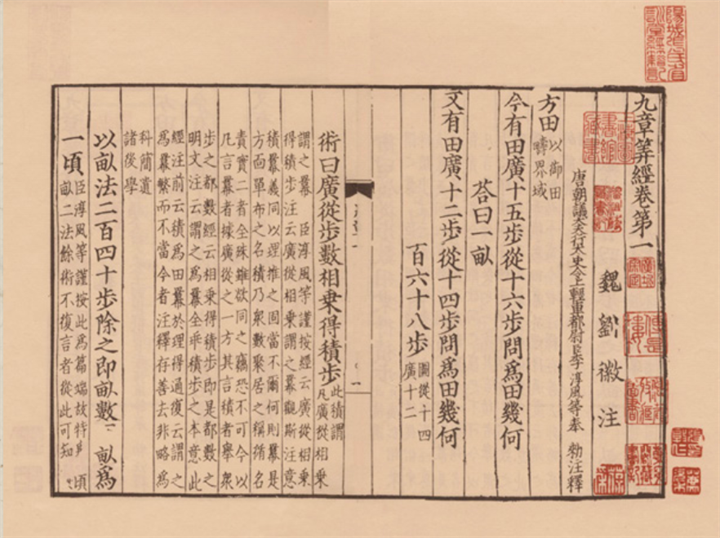 九章筭經卷第一
魏劉徽注
唐朝議大夫行太史令上輕車都尉臣李淳風等奉 勑注釋
方田 以御田
疇界域
今有田廣十五步從十六步問爲田幾何
荅曰一畝
又有田廣十二步從十四步問爲田幾何
百六十八步 圖從十四
廣十二
術曰廣從步數相乗得積步 此積謂
凡廣從相乗
謂之羃 臣淳風等謹按經云廣從相乗
得積步注云廣從相乗謂之羃觀斯注意
積羃義同以理推之固當不爾何則羃是
方面單布之名積乃衆數聚居之稱循名
責實二者全殊雖欲同之竊恐不可今以
凡言羃者據廣從之一方其言積者舉衆
步之都數經云相乗得積步即是都數之
明文注云謂之爲羃全乖積步之本意此
經注前云積爲田羃於理得通復云謂之
爲羃繁而不當今者注釋存善去非略爲
科簡遺
諸後學
以畝法二百四十步除之即畝數 畝爲
一頃 臣淳風等謹按此爲篇端故特 頃
畝二法餘術不復言者從此可知